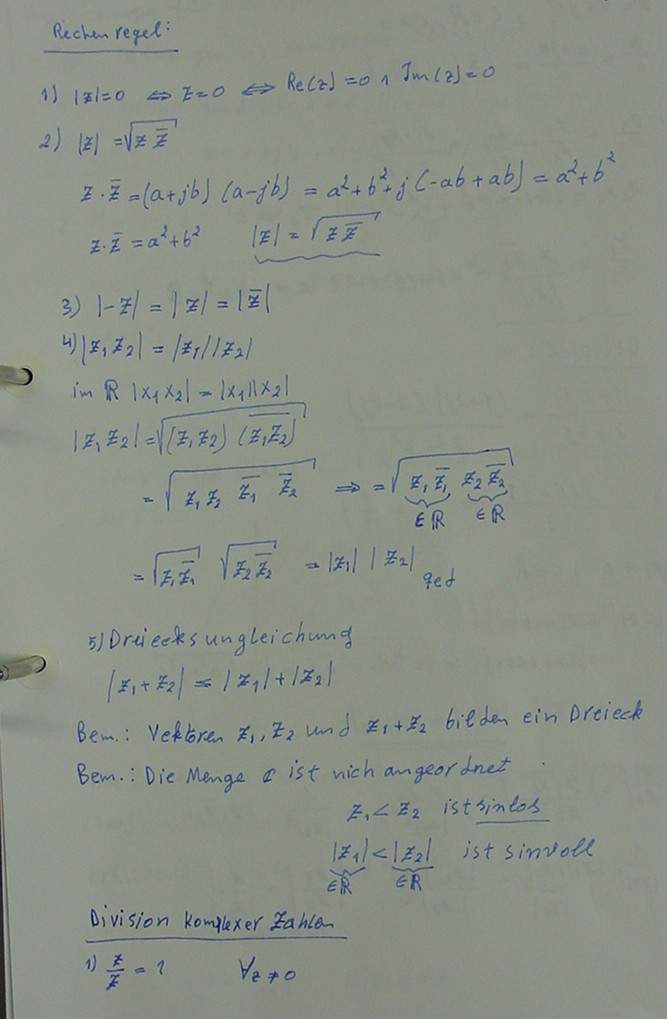 Rechenregel:
1) |z|=0 ⇔ z=0 ⇔ Re(z)=0 ∧ Im(z)=0
2) |z| = √(z z̄)
z·z̄ = (a+jb) (a-jb) = a²+b²+j(-ab+ab) = a²+b²
z·z̄ = a²+b² |z| = √(z z̄)
3) |-z| = |z| = |z̄|
4) |z₁z₂| = |z₁||z₂|
im ℝ |x₁x₂| = |x₁||x₂|
|z₁z₂| = √((z₁z₂) (z̅₁z̅₂))
= √(z₁z₂ z̄₁ z̄₂) ⇒ = √(z₁z̄₁ z₂z̄₂)
∈ℝ ∈ℝ
= √(z₁z̄₁) √(z₂z̄₂) = |z₁| |z₂| qed
5) Dreiecksungleichung
|z₁+z₂| = |z₁|+|z₂|
Bem.: Vektoren z₁, z₂ und z₁+z₂ bilden ein Dreieck
Bem.: Die Menge ℂ ist nich angeordnet
z₁<z₂ ist sinlos
|z₁|<|z₂| ist sinvoll
∈ℝ ∈ℝ
Division komplexer Zahlen
1) z/z = 1 ∀z≠0